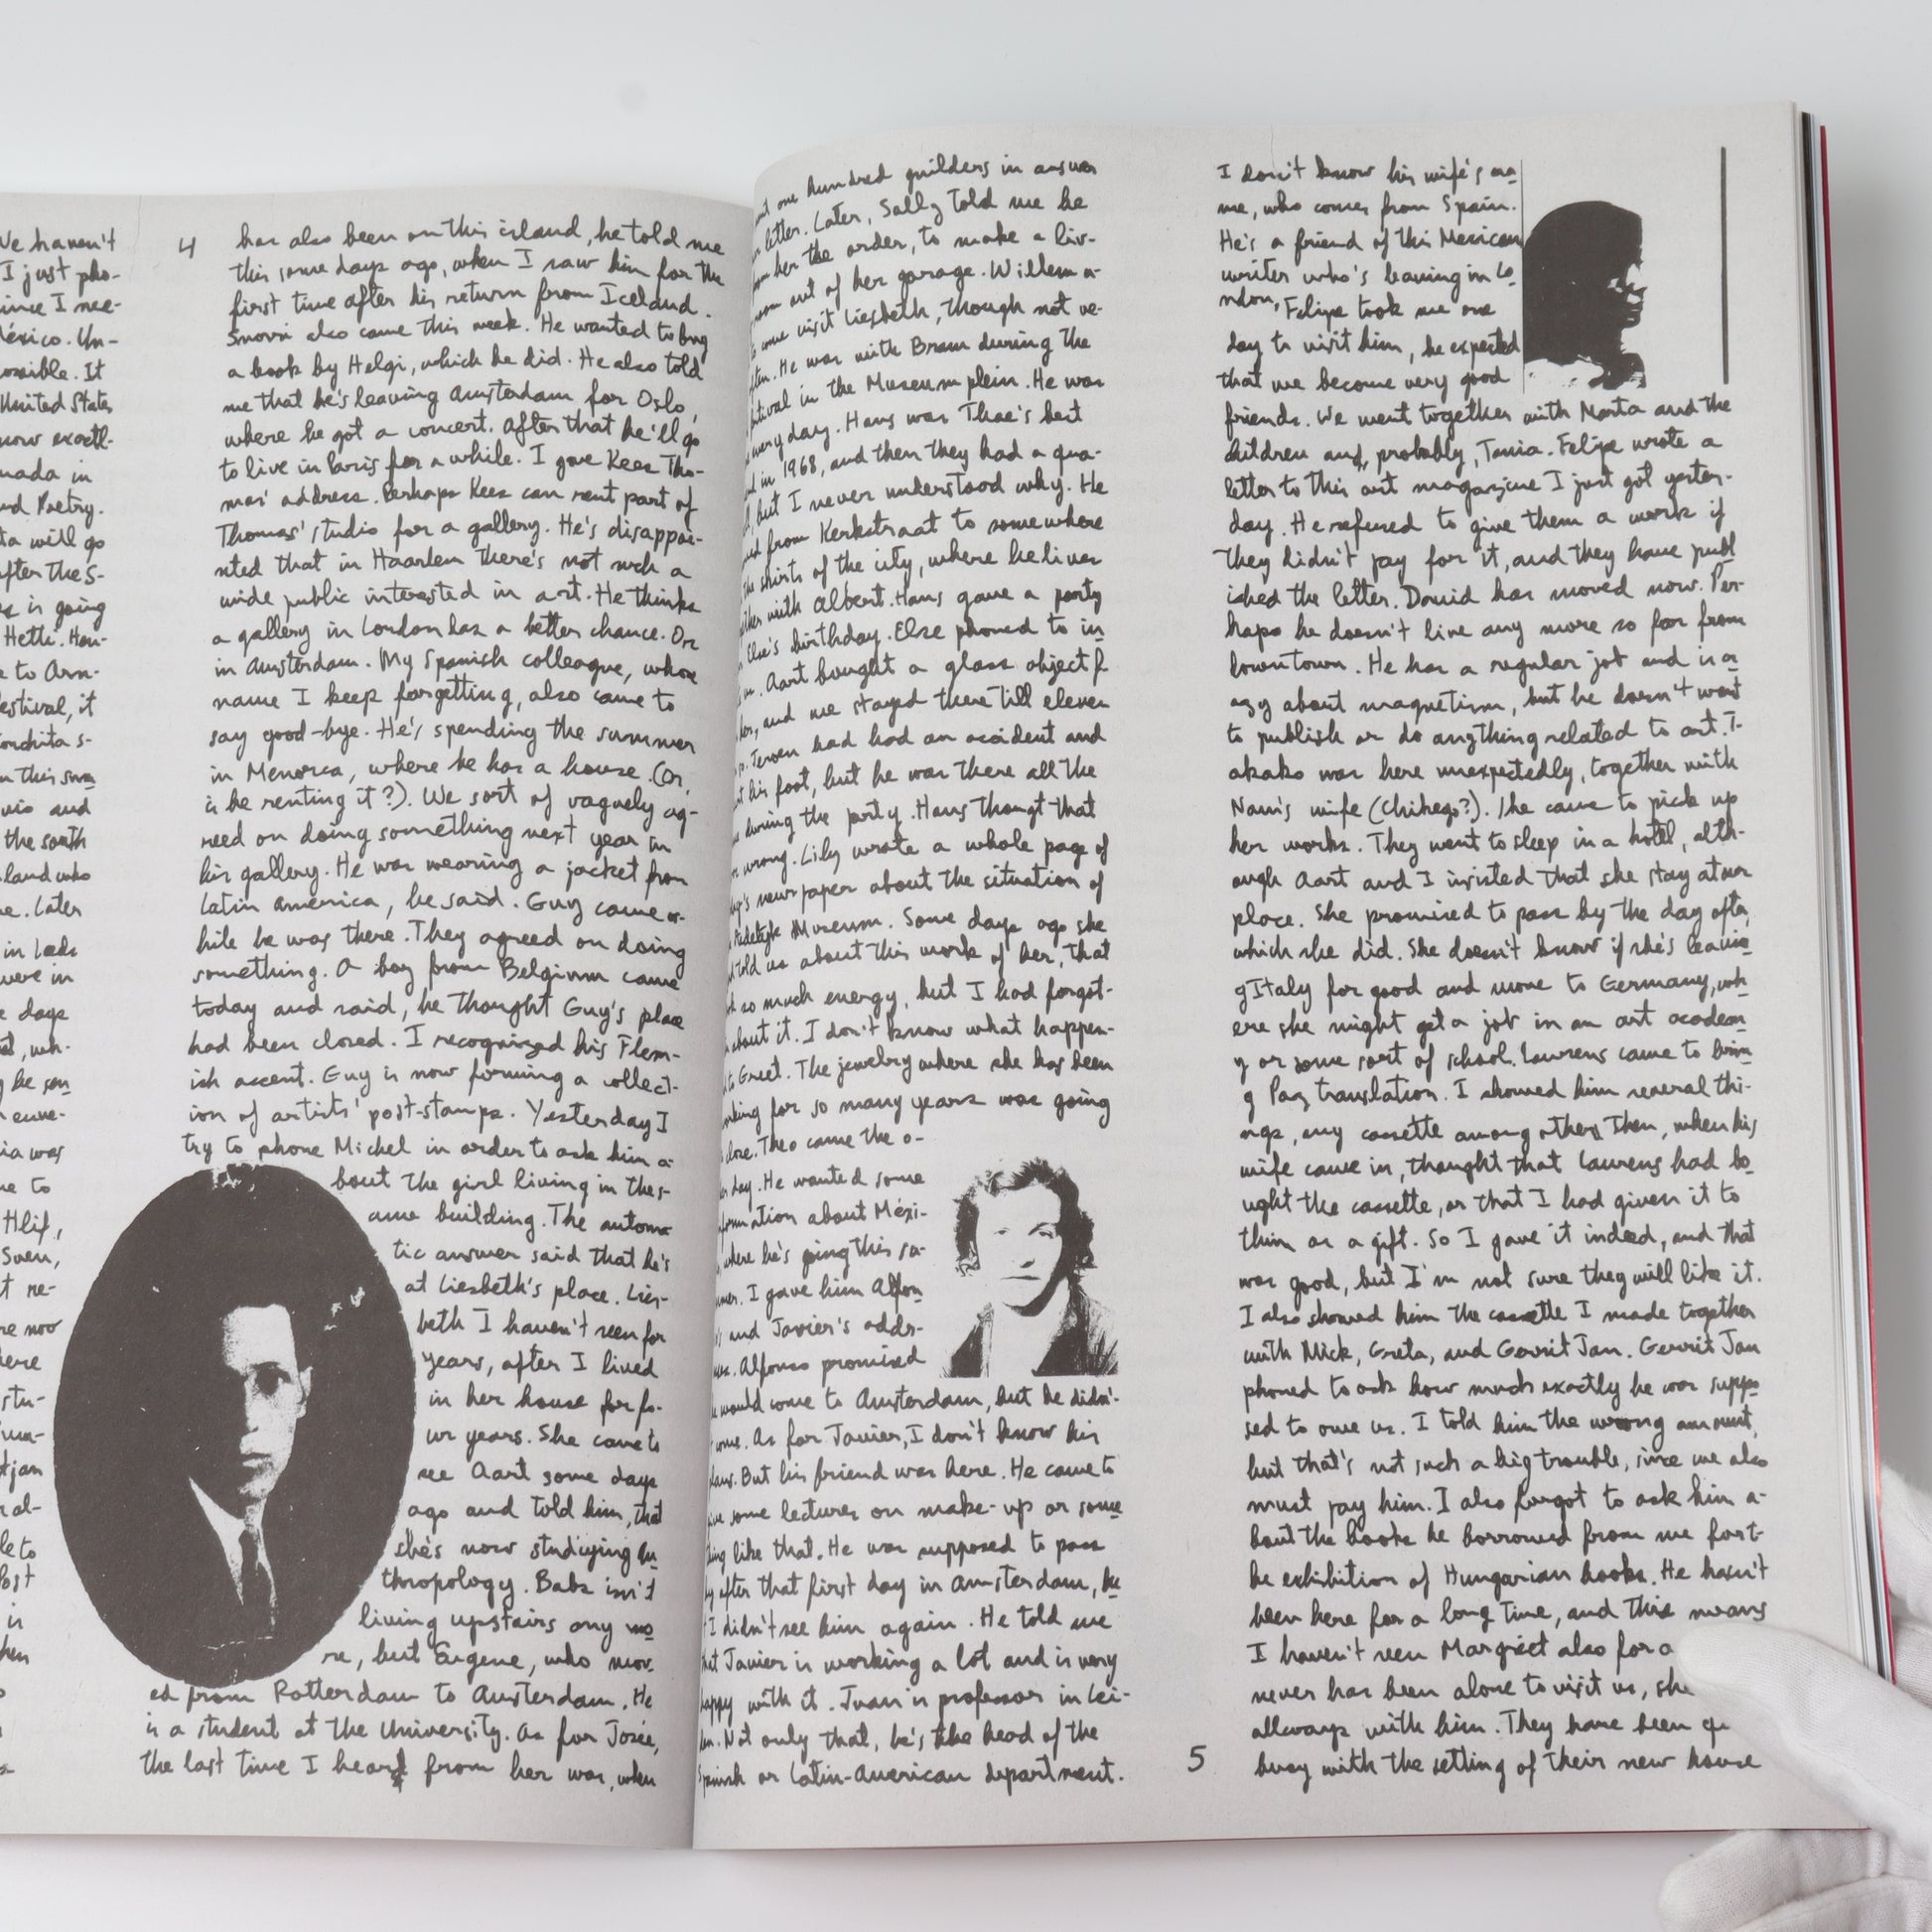 We haven't
I just pho-
ince I nee-
México. Un-
possible. It
United States
now exactl-
nada in
nd Poetry.
ta will go
fter the S-
is going
Hetti. Hen-
to Arn-
estival, it
onchita s-
n this
vio and
the south
land who
e. Later
in Leeds
were in
days
wh-
he
enve-
ia was
to
Hlif,
Sven,
t re-
re now
here
stu-
tjan
al-
le to
Post
in
4
has also been on this island, he told me
this some days ago, when I saw him for the
first time after his return from Iceland.
Snorri also came this week. He wanted to buy
a book by Helgi, which he did. He also told
me that he's leaving Amsterdam for Oslo,
where he got a concert. After that he'll go
to live in Paris for a while. I gave Kees Tho-
mas' address. Perhaps Kees can rent part of
Thomas' studio for a gallery. He's disappoi-
nted that in Haarlem there's not such a
wide public interested in art. He thinks
a gallery in London has a better chance. Or
in Amsterdam. My Spanish colleague, whose
name I keep forgetting, also came to
say good-bye. He's spending the summer
in Menorca, where he has a house (Or,
is he renting it?). We sort of vaguely ag-
reed on doing something next year in
his gallery. He was wearing a jacket from
Latin America, he said. Guy came w-
hile he was there. They agreed on doing
something. A boy from Belginm came
today and said, he thought Guy's place
had been closed. I recognized his Flem-
ish accent. Guy is now forming a collect-
ion of artists' post-stamps. Yesterday I
try to phone Michel in order to ask him a-
bout the girl living in the s-
ame building. The automa
tic answer said that he's
at Liesbeth's place. Lies-
beth I haven't seen for
years, after I lived
in her house for fo-
ur years. She came to
see Aart some days
ago and told him, that
she's now studiying an
thropology. Babs isn't
living upstairs any mo
re, but Eugene, who mov-
ed from Rotterdam to Amsterdam. He
is a student at the University. As for Josée,
the last time I heard from her was, when
one hundred guilders in answer
letter. Later, Sally told me he
her the order, to make a liv-
room out of her garage. Willem a-
come visit Liesbeth, though not ve-
ften. He was with Bram during the
stival in the Museumplein. He was
every day. Hans was Thae's best
d in 1968, and then they had a qua-
, but I never understood why. He
from Kerkstraat to somewhere
the skirts of the city, where he lives
ther with Albert. Hans gave a party
Else's birthday. Else phoned to in
. Aart bought a glass object f
her, and we stayed there till eleven
. Jeroen had had an accident and
his foot, but he was there all the
during the party. Hans thongt that
wrong. Lily wrote a whole page of
's newspaper about the situation of
Stedelijk Museum. Some days ago she
told us about this work of her, that
so much energy, but I had forgot-
about it. I don't know what happen-
to Greet. The jewelry where she has been
rking for so many years was going
close. Theo came the o-
day. He wanted some
formation about Méxi-
, where he's going this su-
mmer. I gave him Alfon
and Javier's addr-
. Alfonso promised
would come to Amsterdam, but he didn'-
come. As for Javier, I don't know his
plans. But his friend was here. He came to
some lectures on make-up or some
thing like that. He was supposed to pass
by after that first day in Amsterdam, bu
t I didn't see him again. He told me
that Javier is working a lot and is very
happy with it. Juan is professor in Lei-
den. Not only that, he's the head of the
Spanish or Latin-American department.
5
I don't know his wife's na
me, who comes from Spain.
He's a friend of this Mexican
writer who's leaving in Lo
ndon, Felipe took me one
day to visit him, he expected
that we become very good
friends. We went together with Marta and the
children and, probably, Tania. Felipe wrote a
letter to this art magazine I just got yester-
day. He refused to give them a work if
they didn't pay for it, and they have publ
ished the letter. David has moved now. Per-
haps he doesn't live any more so far from
downtown. He has a regular job and is cr
azy about magnetism, but he doesn't want
to publish or do anything related to art. T-
akako was here unexpectedly, together with
Nam's wife (Chihego?). She came to pick up
her works. They went to sleep in a hotel, alth-
ough Aart and I insisted that she stay at our
place. She promised to pass by the day after,
which she did. She doesn't know if she's leavin
g Italy for good and move to Germany, wh
ere she might get a job in an art academ
y or some sort of school. Laurens came to brin
g Paz translation. I showed him several thi-
ngs, my cassette among others. Then, when his
wife came in, thought that Laurens had bo
ught the cassette, or that I had given it to
thim as a gift. So I gave it indeed, and that
was good, but I'm not sure they will like it.
I also showed him the cassette I made together
with Mick, Greta, and Gerrit Jan. Gerrit Jan
phoned to ask how much exactly he was suppo
sed to owe us. I told him the wrong amount,
but that's not such a big trouble, since we also
must pay him. I also forgot to ask him a-
bout the books he borrowed from me for t-
he exhibition of Hungarian books. He hasn't
been here for a long time, and this means
I haven't seen Margriet also for a
never has been alone to visit us, she
allways with him. They have been
busy with the setting of their new house